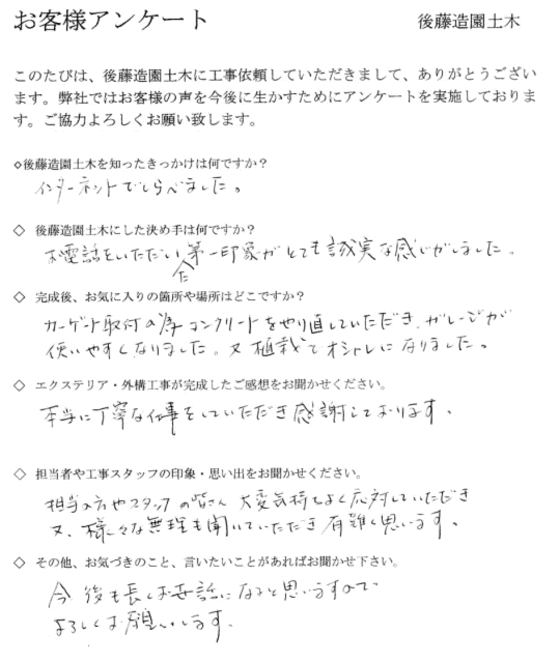 お客様アンケート
後藤造園土木
このたびは、後藤造園土木に工事依頼していただきまして、ありがとうござい
ます。弊社ではお客様の声を今後に生かすためにアンケートを実施しておりま
す。ご協力よろしくお願い致します。
◇後藤造園土木を知ったきっかけは何ですか？
インターネットでしらべました。
◇ 後藤造園土木にした決め手は何ですか？
お電話をいただいた第一印象がとても誠実な感じがしました。
◇ 完成後、お気に入りの箇所や場所はどこですか？
カーゲート取付の為コンクリートをやり直していただき、ガレージが
使いやすくなりました。又植栽でオシャレになりました。
◇ エクステリア・外構工事が完成したご感想をお聞かせください。
本当に丁寧な仕事をしていただき感謝しております。
◇ 担当者や工事スタッフの印象・思い出をお聞かせください。
担当の方やスタッフの皆さん 大変気持ちよく応対していただき
又、様々な無理も聞いていただき有難く思います。
◇ その他、お気づきのこと、言いたいことがあればお聞かせ下さい。
今後も長くお世話になると思いますので
よろしくお願いします。